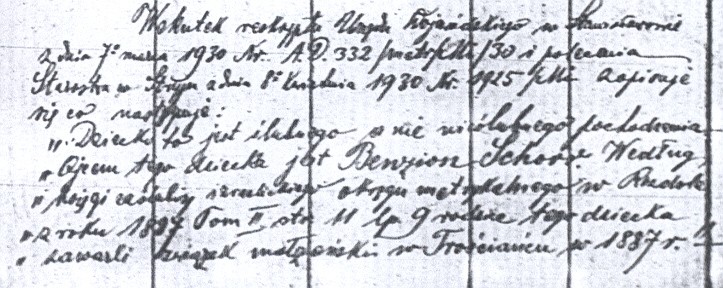 Wskutek reskryptu Urzędu Wojewódzkiego w Stanisławowie
z dnia 7º marca 1930 Nr. A.D. 332/metr/30 i polecenia
Starostwa w Stryju z dnia 8º kwietnia 1930 Nr. 1925 zapisuje
się co następuje:
"Dziecko to jest ślubnego a nie nieślubnego pochodzenia
"Ojcem tego dziecka jest Benzion Schorr Według
"księgi zaślubin izraelickiego okręgu metrykalnego w
"z roku 1887 Tom II str 11 lp 9 rodzice tego dziecka
"zawarli związek małżeński w Trościańcu w 1887 r."